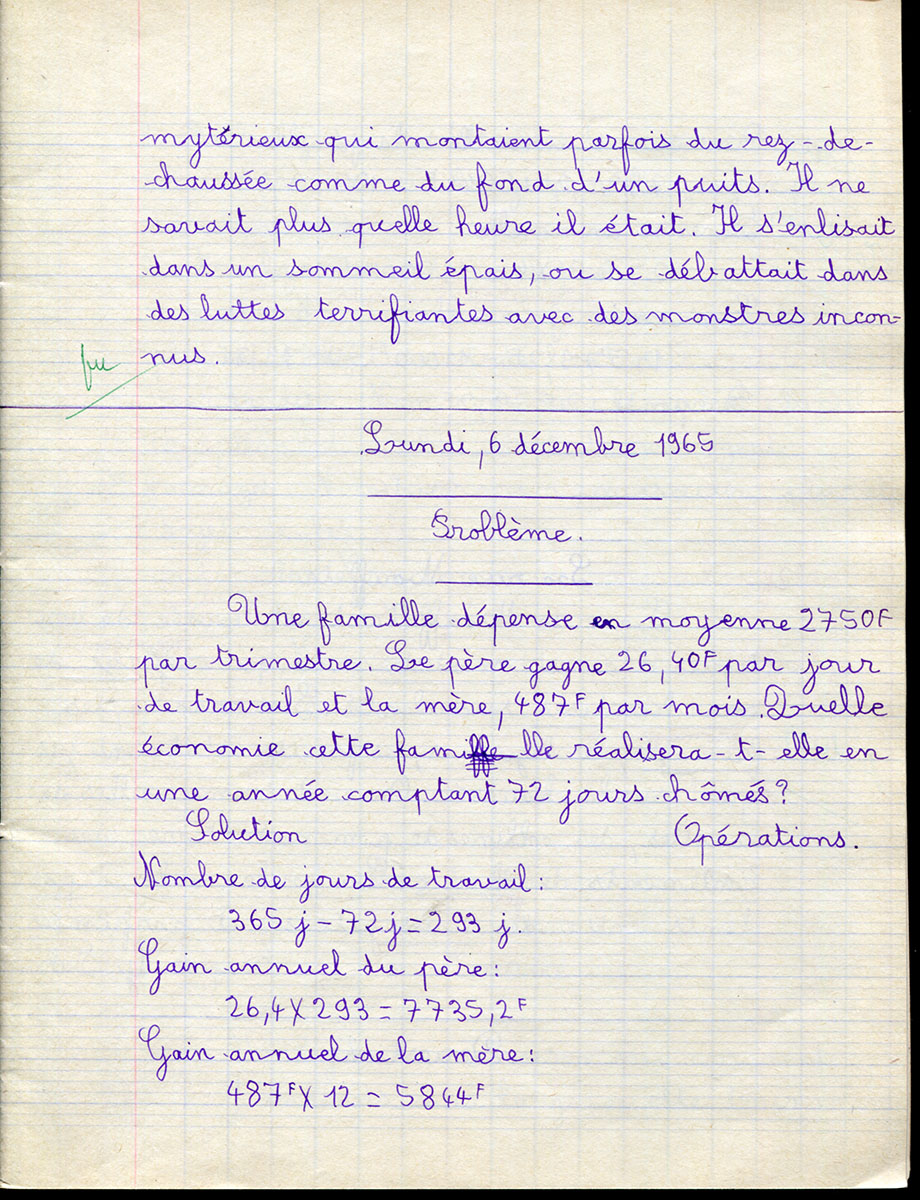 mytérieux qui montaient parfois du rez-de-
chaussée comme du fond d'un puits. Il ne
savait plus quelle heure il était. Il s'enlisait
dans un sommeil épais, ou se débattait dans
des luttes terrifiantes avec des monstres incon-
nus.
vu
Lundi, 6 décembre 1965
Problème.
Une famille dépense en moyenne 2750F
par trimestre. Le père gagne 26,40F par jour
de travail et la mère, 487F par mois. Quelle
économie cette famille réalisera-t-elle en
une année comptant 72 jours chômés?
Solution Opérations.
Nombre de jours de travail:
365 j - 72 j = 293 j.
Gain annuel du père:
26,4 X 293 = 7735,2F
Gain annuel de la mère:
487F X 12 = 5844F